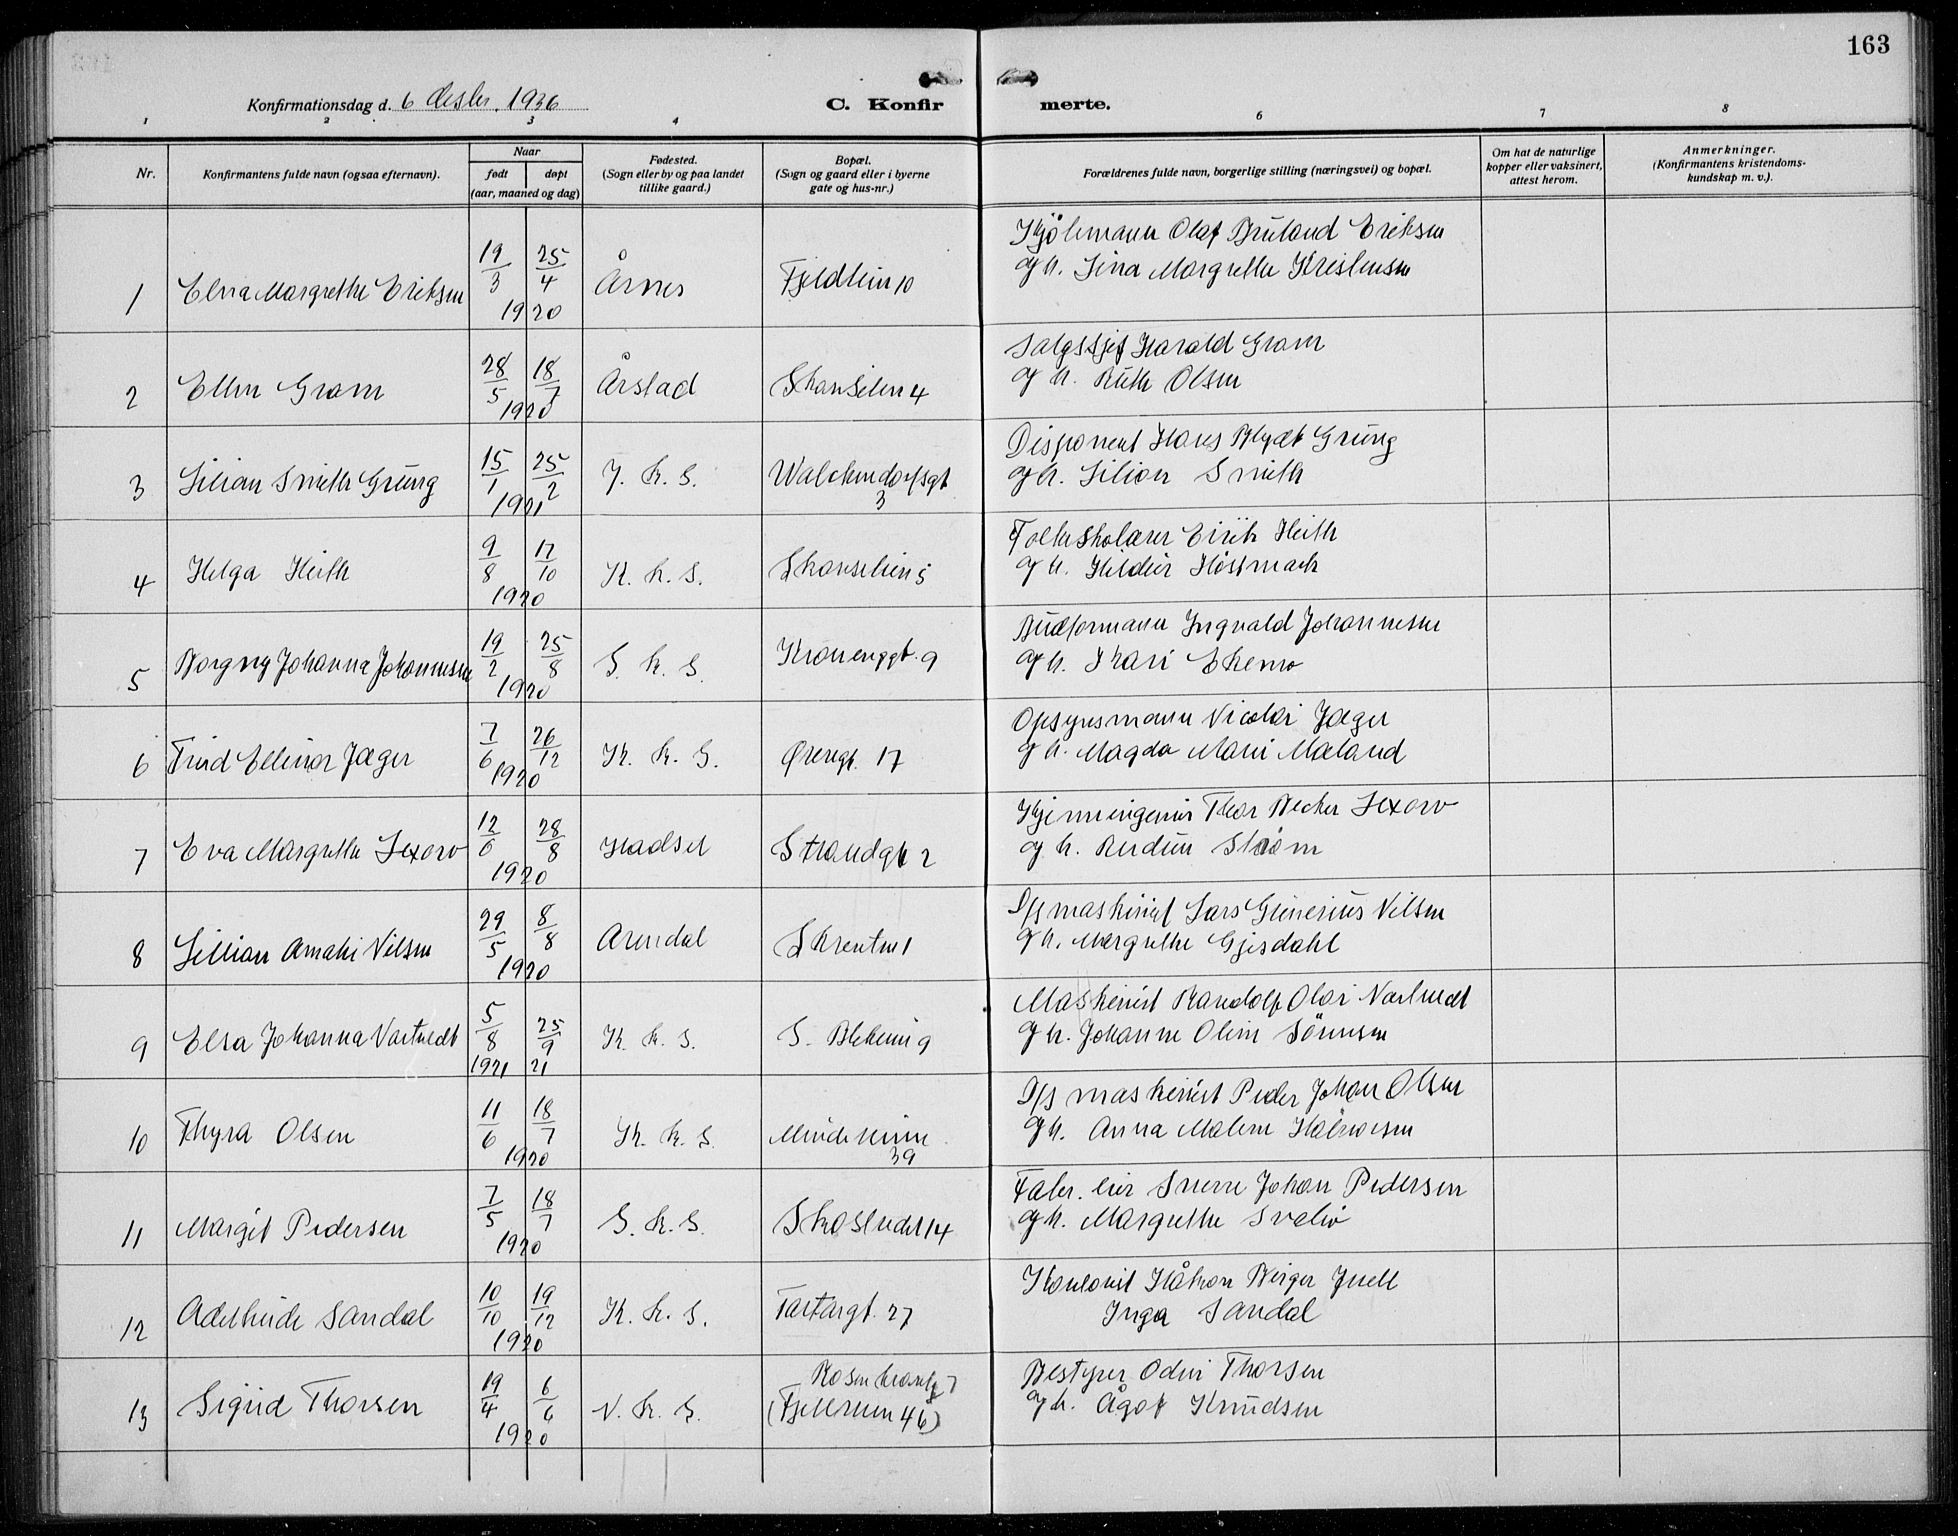 163
Konfirmationsdag d. 6 desbr. 1936
C. Konfirmerte.
1 2 3 4 6 7 8
Nr.
Konfirmantens fulde navn (ogsaa efternavn).
Naar
født døpt
(aar, maaned og dag)
Fødested.
(Sogn eller by og paa landet
tillike gaard.)
Bopæl.
(Sogn og gaard eller i byerne
gate og hus-nr.)
Forældrenes fulde navn, borgerlige stilling (næringsvei) og bopæl.
Om hat de naturlige
kopper eller vaksinert,
attest herom.
Anmerkninger.
(Konfirmantens kristendoms-
kundskap m. v.).
Kjølemann Olaf Bruland Eriksen
1 Elna Margrethe Eriksen 19/3 25/4 1920 Årnes Fjeldlien 10 og h. Lina Margrethe Kristensen
Salgssjef Harald Gram
2 Ellen Gram 28/5 18/7 1920 Årstad Skanselien 4 og h. Ruth Olsen
Disponent Hans Blydt Grung
3 Lilian Smith Grung 15/1 25/2 1921 J. k. s. Walckendorfsgt 3 og h. Lilian Smith
Folkeskolærer Eirik Heith
4 Helga Heith 9/8 17/10 1920 K. k. s. Skanselien 5 og h. Hildur Høstmark
Budformann Ingvald Johannesen
5 Borgny Johanna Johannesen 19/2 25/8 1920 S. k. s. Kronenggt. 9 og h. Kari Ekemo
Opsynsmann Nicolai Jæger
6 Turid Ellinor Jæger 7/6 26/12 1920 K. k. s. Øvregt. 17 og h. Magda Marie Mæland
Kjemiingeniør Thor Becker Sexow
7 Eva Margrethe Sexow 12/6 28/8 1920 Hadsel Strandgt 2 og h. Strøm
D/s maskinist Lars Gunerius Nilsen
8 Lillian Amalie Nilsen 29/5 8/8 1920 Arendal Skrenten 1 og h. Margrethe Gjesdahl
Maskinist Randolf Olai Nartvedt
9 Elsa Johanna Nartvedt 5/8 1921 25/9 21 K. k. s. S. Blekevei 9 og h. Johanne Oline Sörensen
D/s maskinist Peder Johan Olsen
10 Thyra Olsen 11/6 18/7 1920 K. k. s. 39 og h. Anna Malene Halvorsen
Fabr. eier Sverre Johan Pedersen
11 Margit Pedersen 7/5 18/7 1920 S. k. s. Skostredet 14 og h. Margrethe
Kontorist Håkon Birger Juell
12 Adelheide Sandal 10/10 19/12 1920 K. k. s. Tartargt. 27 Inga Sandal
Bestyrer Odin Thorsen
13 Sigrid Thorsen 19/4 6/6 1920 N. k. s. Rosenkrantzg 7 (Fjellveien 46) og h. Ågot Knudsen